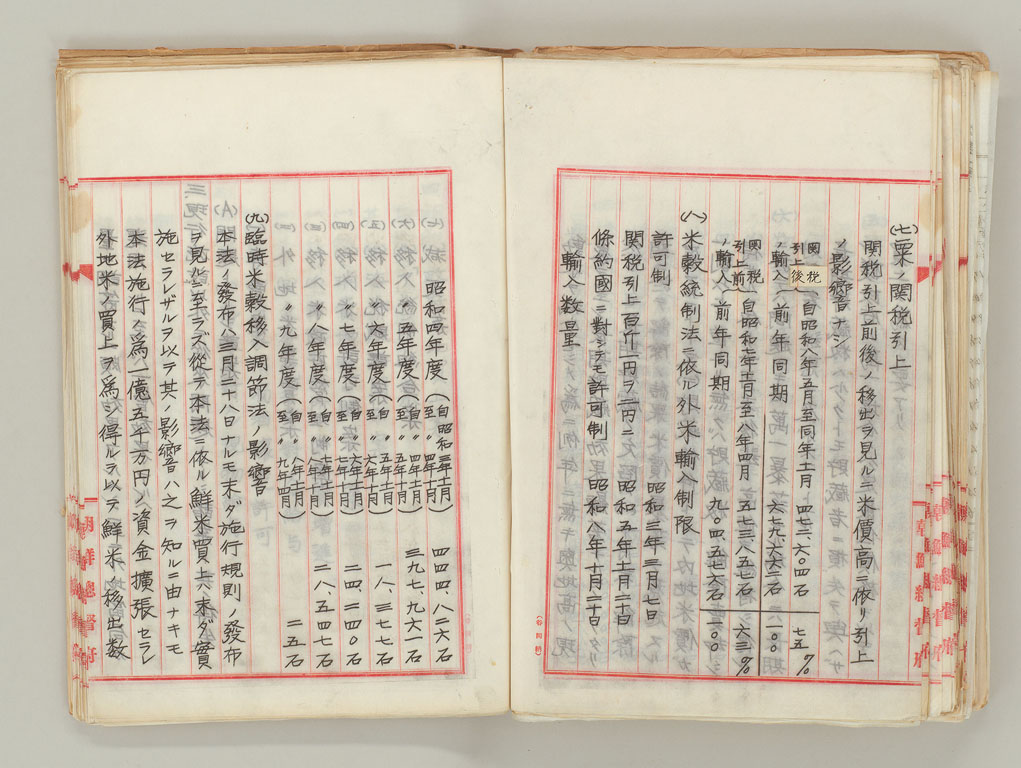 (七)粟ノ関税引上
関税引上前後ノ移出ヲ見ルニ米價高ニ依リ引上
ノ影響ナシ
関税引上後ノ輸入(自昭和八年五月至同年十一月 四七二、六〇四石 七五%
前年同期 六七九、六六二石 一〇〇
関税引上前ノ輸入(自昭和七年十一月至八年四月 五七三、八五七石 六三%
前年同期 九〇四、五七六石 一〇〇
(八)米穀統制法ニ依ル外米輸入制限
許可制 昭和三年三月七日
関税引上百斤一円ヲ二円ニ 昭和五年十一月二十日
條約國ニ對シテモ許可制 昭和八年十一月二十日
輸入数量
昭和四年度(自昭和三年十一月至〃四年十月) 四四四、八二六石
〃五年度(自〃四年十一月至〃五年十月) 三九七、九六一石
〃六年度(自〃五年十一月至〃六年十月) 一八、三七七石
〃七年度(自〃六年十一月至〃七年十月) 二四、二四〇石
〃八年度(自〃七年十一月至〃八年十月) 二八、五四七石
〃九年度(自〃八年十一月至〃九年四月) 二五石
(九)臨時米穀移入調節法ノ影響
本法ノ發布ハ三月二十八日ナルモ未ダ施行規則ノ發布
ヲ見ルニ至ラズ從テ本法ニ依ル鮮米買上ハ未ダ實
施セラレザルヲ以テ其ノ影響ハ之ヲ知ルニ由ナキモ
本法施行ノ爲一億五千万円ノ資金擴張セラレ
外地米ノ買上ヲ爲シ得ルヲ以テ鮮米ノ移出数